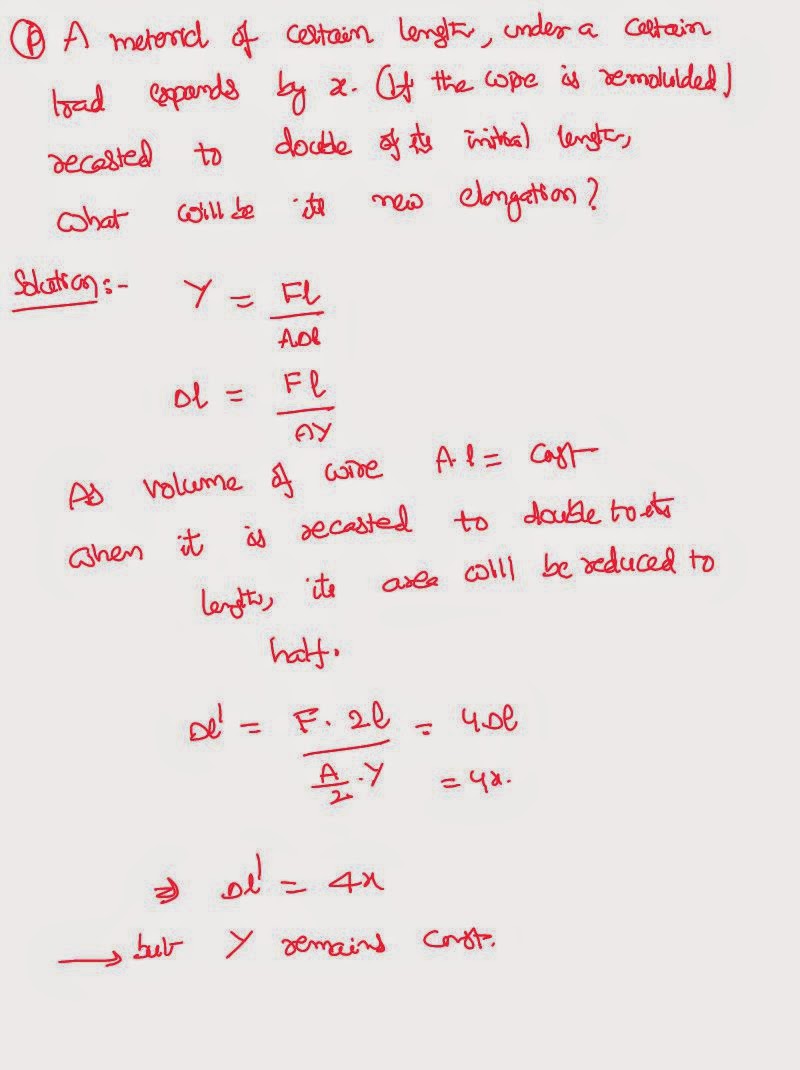 (P) A material of certain length, under a certain
load expands by x. (If the wire is remoulded)
recasted to double of its initial length,
what will be its new elongation?
Solution:-
Y = Fl / AΔl
Δl = Fl / AY
As volume of wire A.l = const
when it is recasted to double to its
length, its area will be reduced to
half.
Δl' = F. 2l / (A/2 . Y) = 4Δl
= 4x.
⇒ Δl' = 4x
→ but Y remains const.